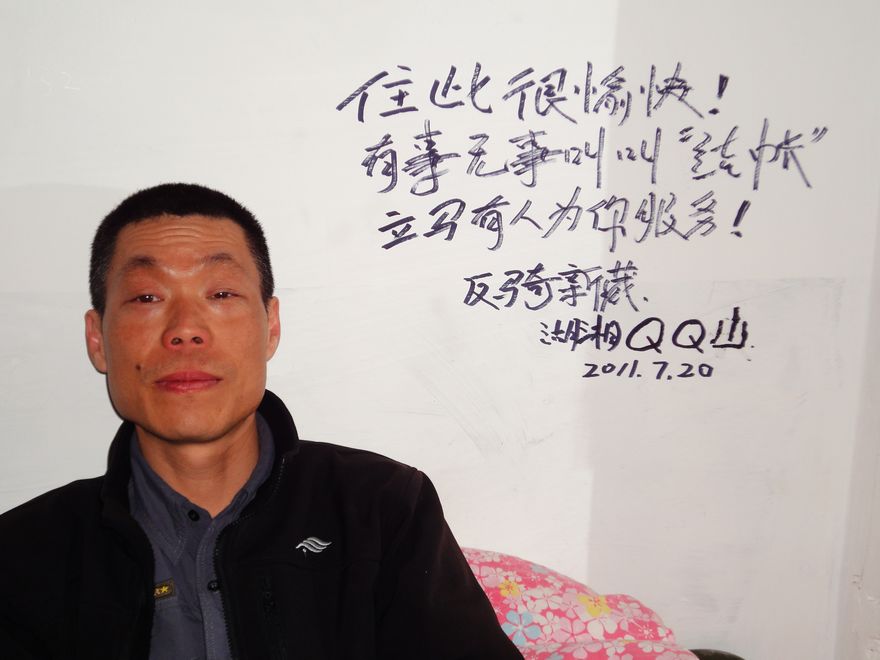 住此很愉快！
有事无事叫叫“结帐”
立马有人为你服务！
反骑新藏.
湖湘QQ山
2011.7.20